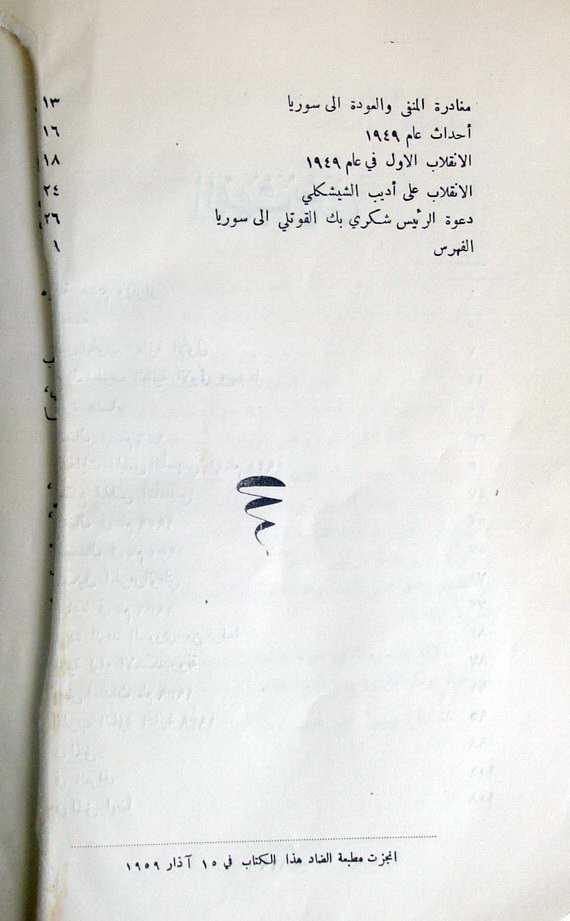 مغادرة المنفى والعودة الى سوريا ١٣
أحداث عام ١٩٤٩ ١٦
الانقلاب الاول في عام ١٩٤٩ ١٨
الانقلاب على أديب الشيشكلي ٢٤
دعوة الرئيس شكري بك القوتلي الى سوريا ٢٦
الفهرس ١
انجزت مطبعة الضاد هذا الكتاب في ١٥ آذار ١٩٥٩